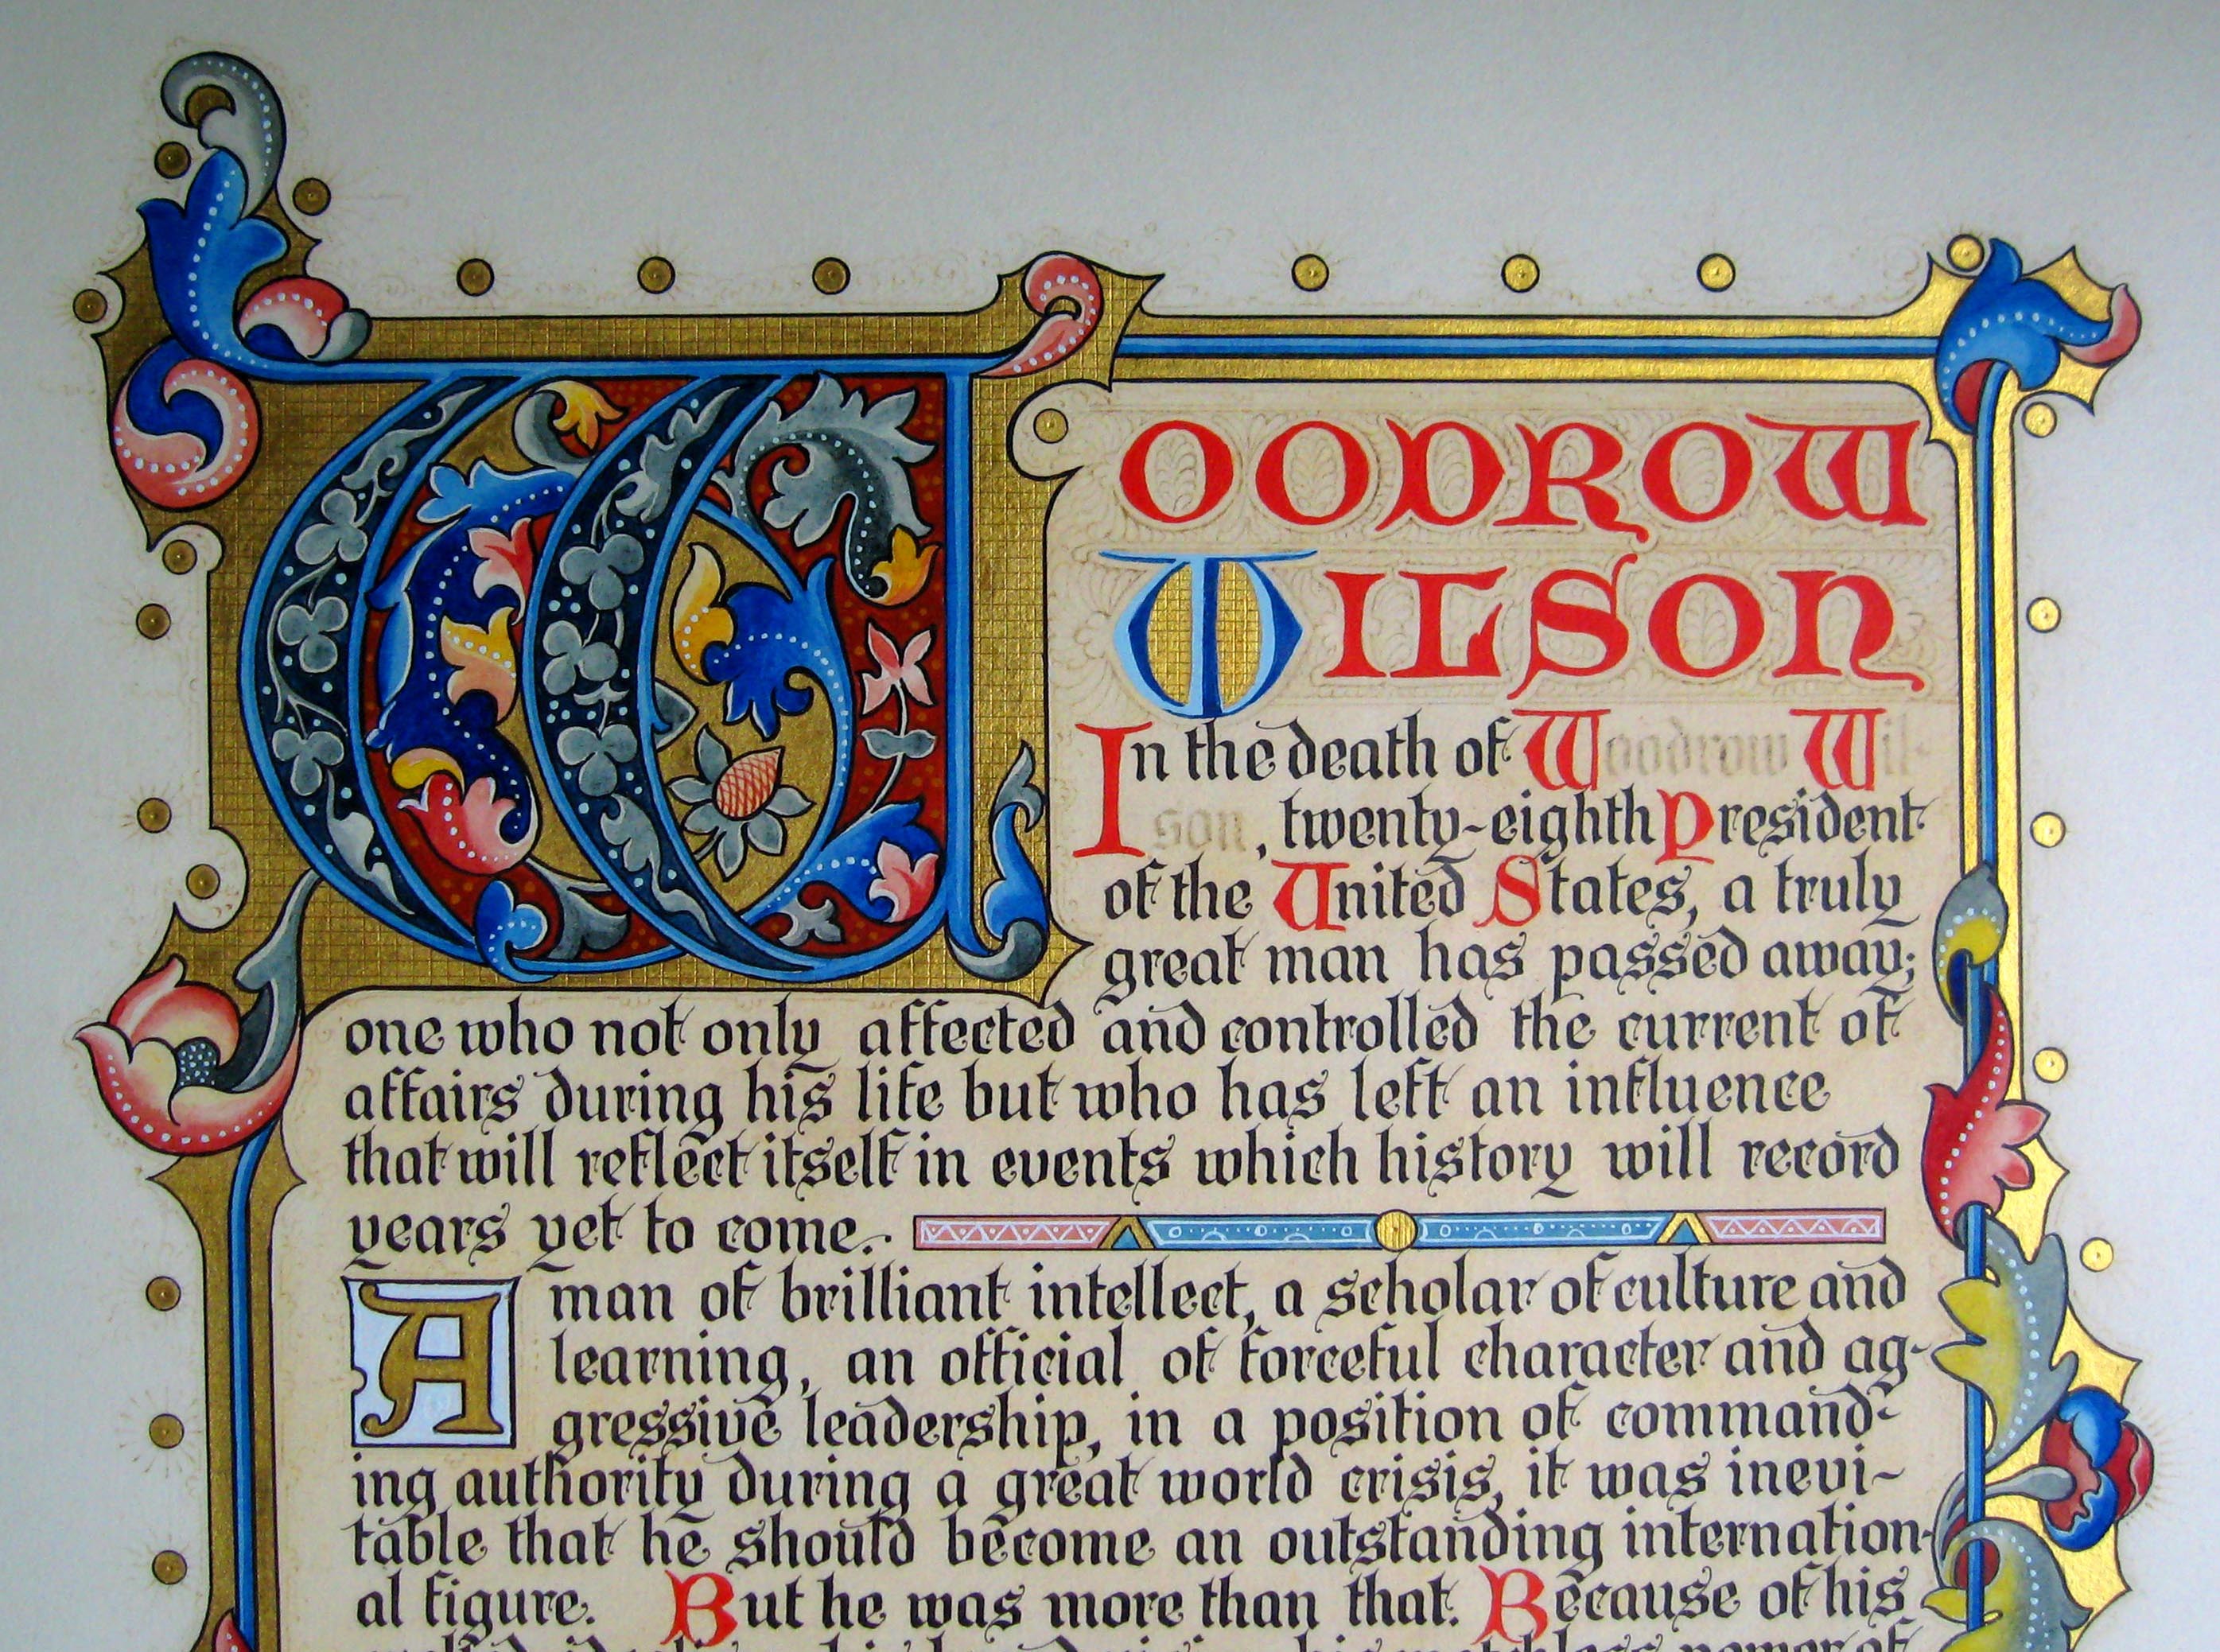 WOODROW
WILSON
In the death of Woodrow Wil-
son, twenty-eighth President
of the United States, a truly
great man has passed away;
one who not only affected and controlled the current of
affairs during his life but who has left an influence
that will reflect itself in events which history will record
years yet to come.
A man of brilliant intellect, a scholar of culture and
learning, an official of forceful character and ag-
gressive leadership, in a position of command-
ing authority during a great world crisis, it was inevi-
table that he should become an outstanding internation-
al figure. But he was more than that. Because of his
power of